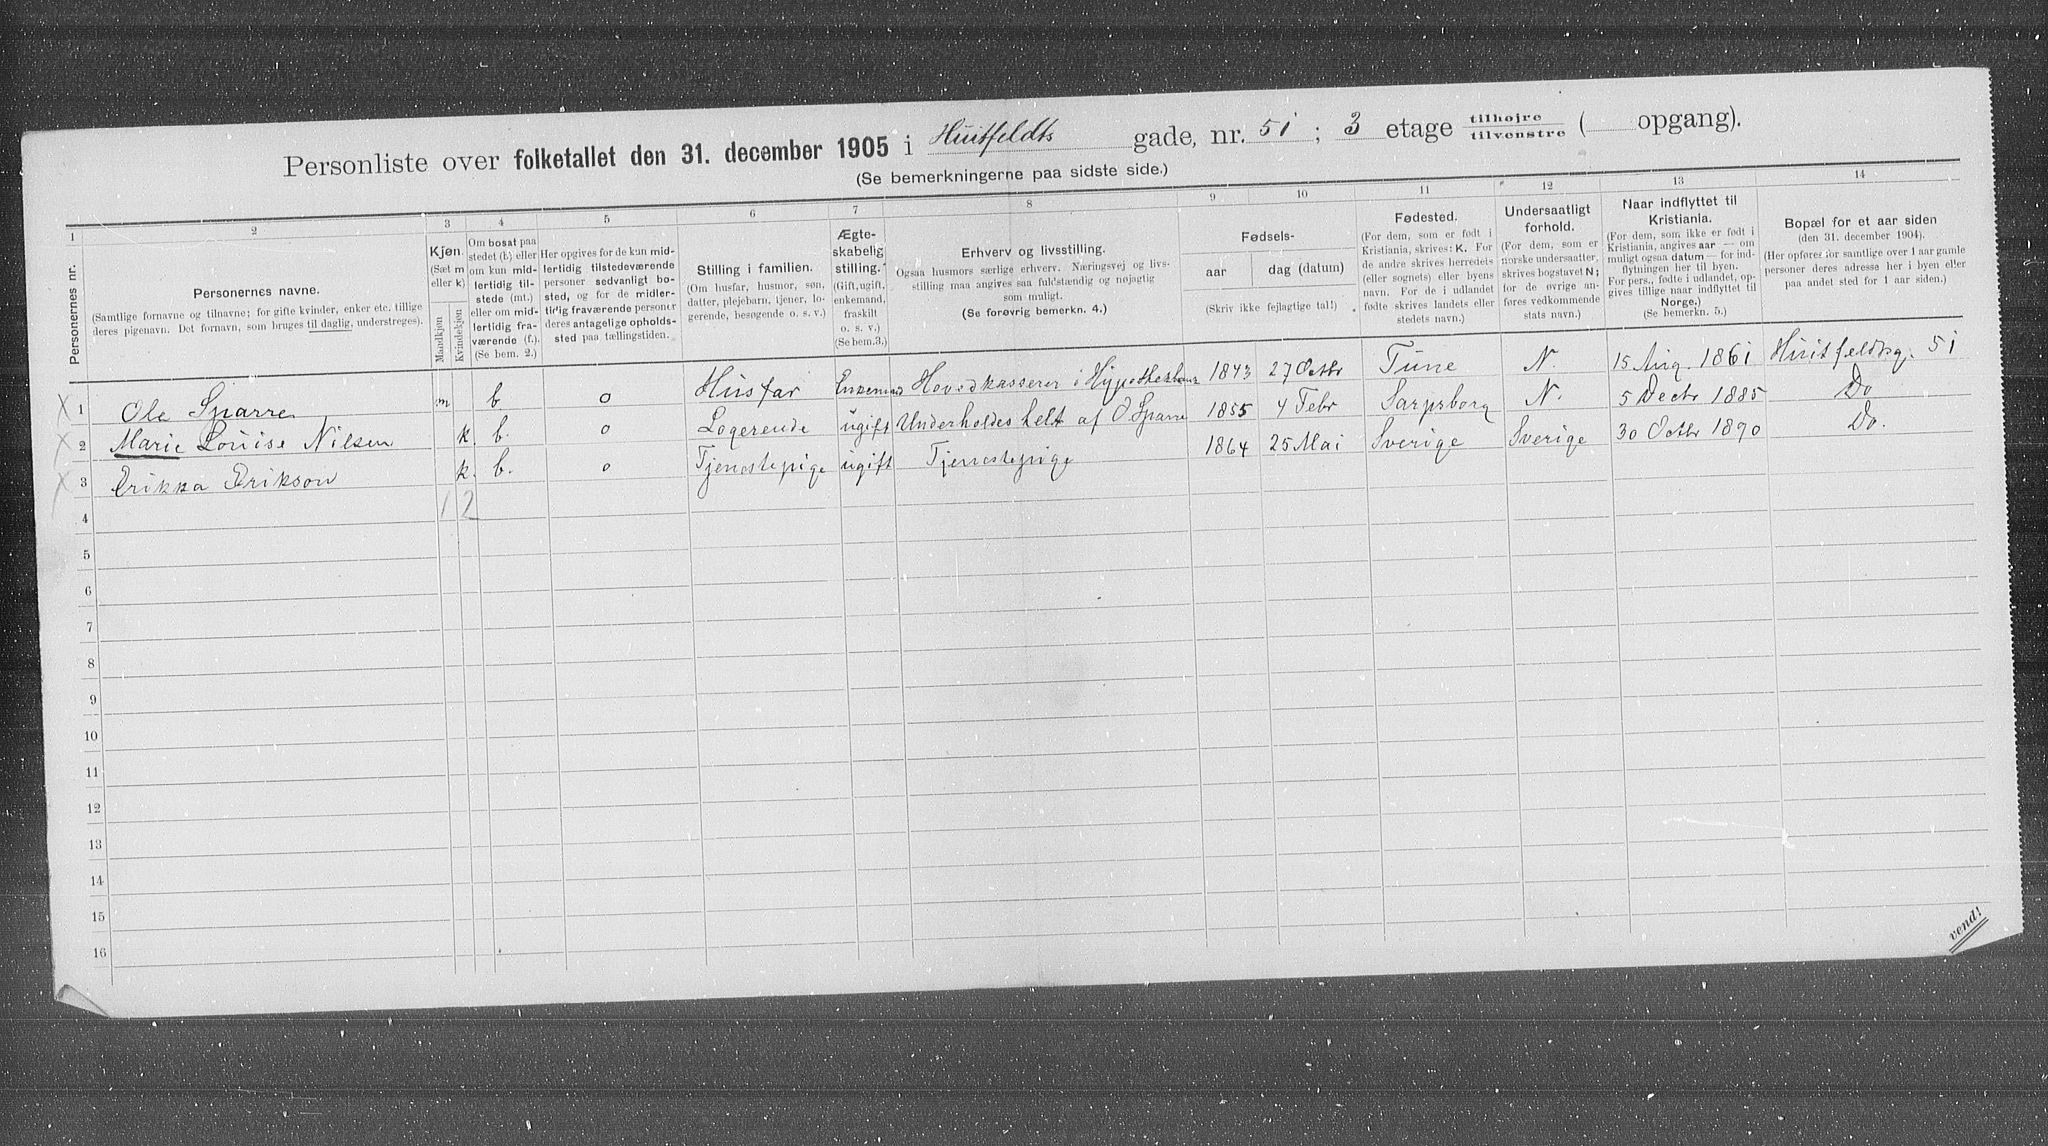 Personliste over folketallet den 31. december 1905 i Huitfeldts gade, nr. 51; 3 etage tilhøjre tilvenstre ( opgang).
(Se bemerkningerne paa sidste side.)
1 2 3 4 5 6 7 8 9 10 11 12 13 14
Personernes nr.
Personernes navne.
(Samtlige fornavne og tilnavne; for gifte kvinder, enker etc. tillige deres pigenavn. Det fornavn, som bruges til daglig, understreges).
Kjøn.
(Sæt m eller k)
Mandkjøn
Kvindekjøn
Om bosat paa stedet (b) eller om kun midlertidig tilstede (mt.) eller om midlertidig fraværende (f.). (Se bem. 2.)
Her opgives for de kun midlertidig tilstedeværende personer sedvanligt bosted, og for de midlertidig fraværende personer deres antagelige opholdssted paa tællingstiden.
Stilling i familien.
(Om husfar, husmor, søn, datter, plejebarn, tjener, logerende, besøgende o. s. v.)
Ægteskabelig stilling.
(Gift, ugift, enkemand, fraskilt o. s. v.) (Se bem.3.)
Erhverv og livsstilling.
Ogsaa husmors særlige erhverv. Næringsvej og livsstilling maa angives saa fuldstændig og nøjagtig som muligt.
(Se forøvrig bemerkn. 4.)
Fødsels-
aar dag (datum)
(Skriv ikke fejlagtige tal!)
Fødested.
(For dem, som er født i Kristiania, skrives: K. For de andre skrives herredets (eller sognets) eller byens navn. For de i udlandet fødte skrives landets eller stedets navn.)
Undersaatligt forhold.
(For dem, som er norske undersaatter, skrives bogstavet N; for de øvrige anføres vedkommende stats navn.)
Naar indflyttet til Kristiania.
(For dem, som ikke er født i Kristiania, angives aar — om muligt ogsaa datum — for indflytningen her til byen. For pers., fødte i udlandet, opgives tillige naar indflyttet til Norge.) (Se bemerkn. 5.)
Bopæl for et aar siden
(den 31. december 1904).
(Her opføres for samtlige over 1 aar gamle personer deres adressa her i byen eller paa andet sted for 1 aar siden.)
1 Ole Sparre m b. o Husfar Enkemand Hovedkasserer i Hypothekbank 1843 27 Octbr Tune N. 15 Aug. 1861 Huitfeldtsg. 51
2 Marie Louise Nilsen k. b. o Logerende ugift Underholdes helt af O Sparre 1855 4 Febr Sarpsborg N. 5 Decbr 1885 Do
3 Erikka Erikson k. b. o Tjenestepige ugift Tjenestepige 1864 25 Mai Sverige Sverige 30 Octbr 1890 Do.
4 1 2
5
6
7
8
9
10
11
12
13
14
15
16
vend!